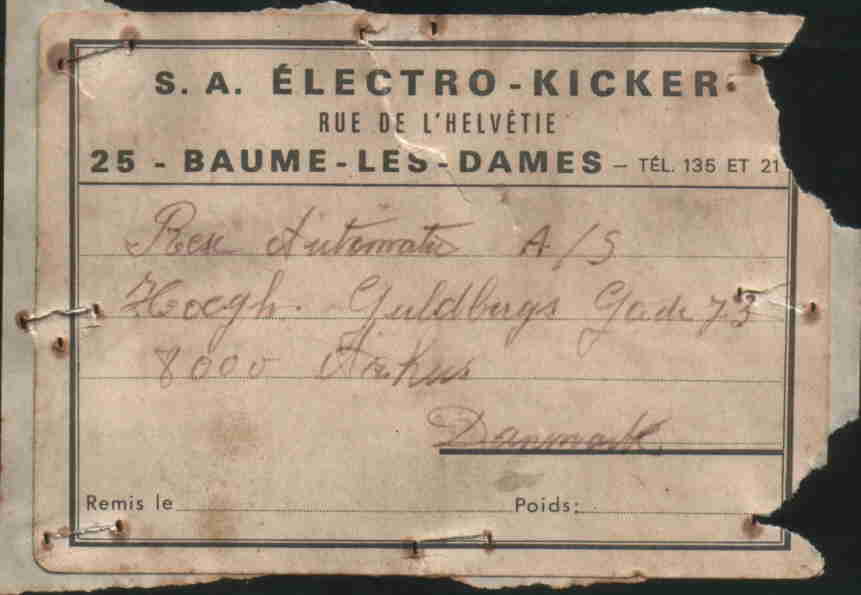 S. A. ÉLECTRO-KICKER
RUE DE L'HELVÉTIE
25 - BAUME-LES-DAMES — TÉL. 135 ET 21
Rex Automatic A/S
Hoegh. Guldbergs Gade 73
8000 Århus
Danmark
Remis le
Poids: